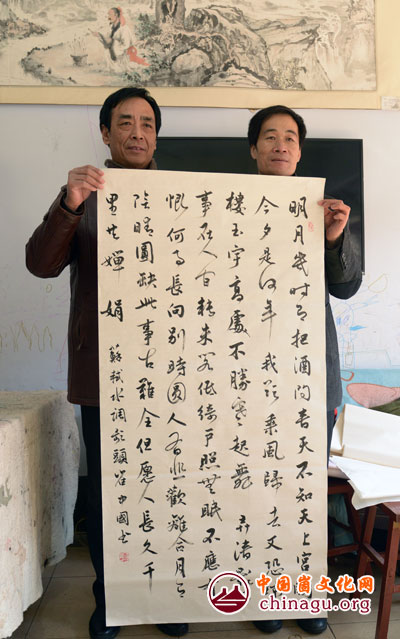 明月幾時有把酒問青天不知天上宮
今夕是何年我欲乘風歸去又恐
樓玉宇高處不勝寒起舞弄清影
事在人間轉朱閣低綺戶照無眠不應有
恨何事長向別時圓人有悲歡離合月有
陰晴圓缺此事古難全但愿人長久千
里共嬋娟
蘇軾水調歌頭 中國書
中国崮文化网
chinagu.org